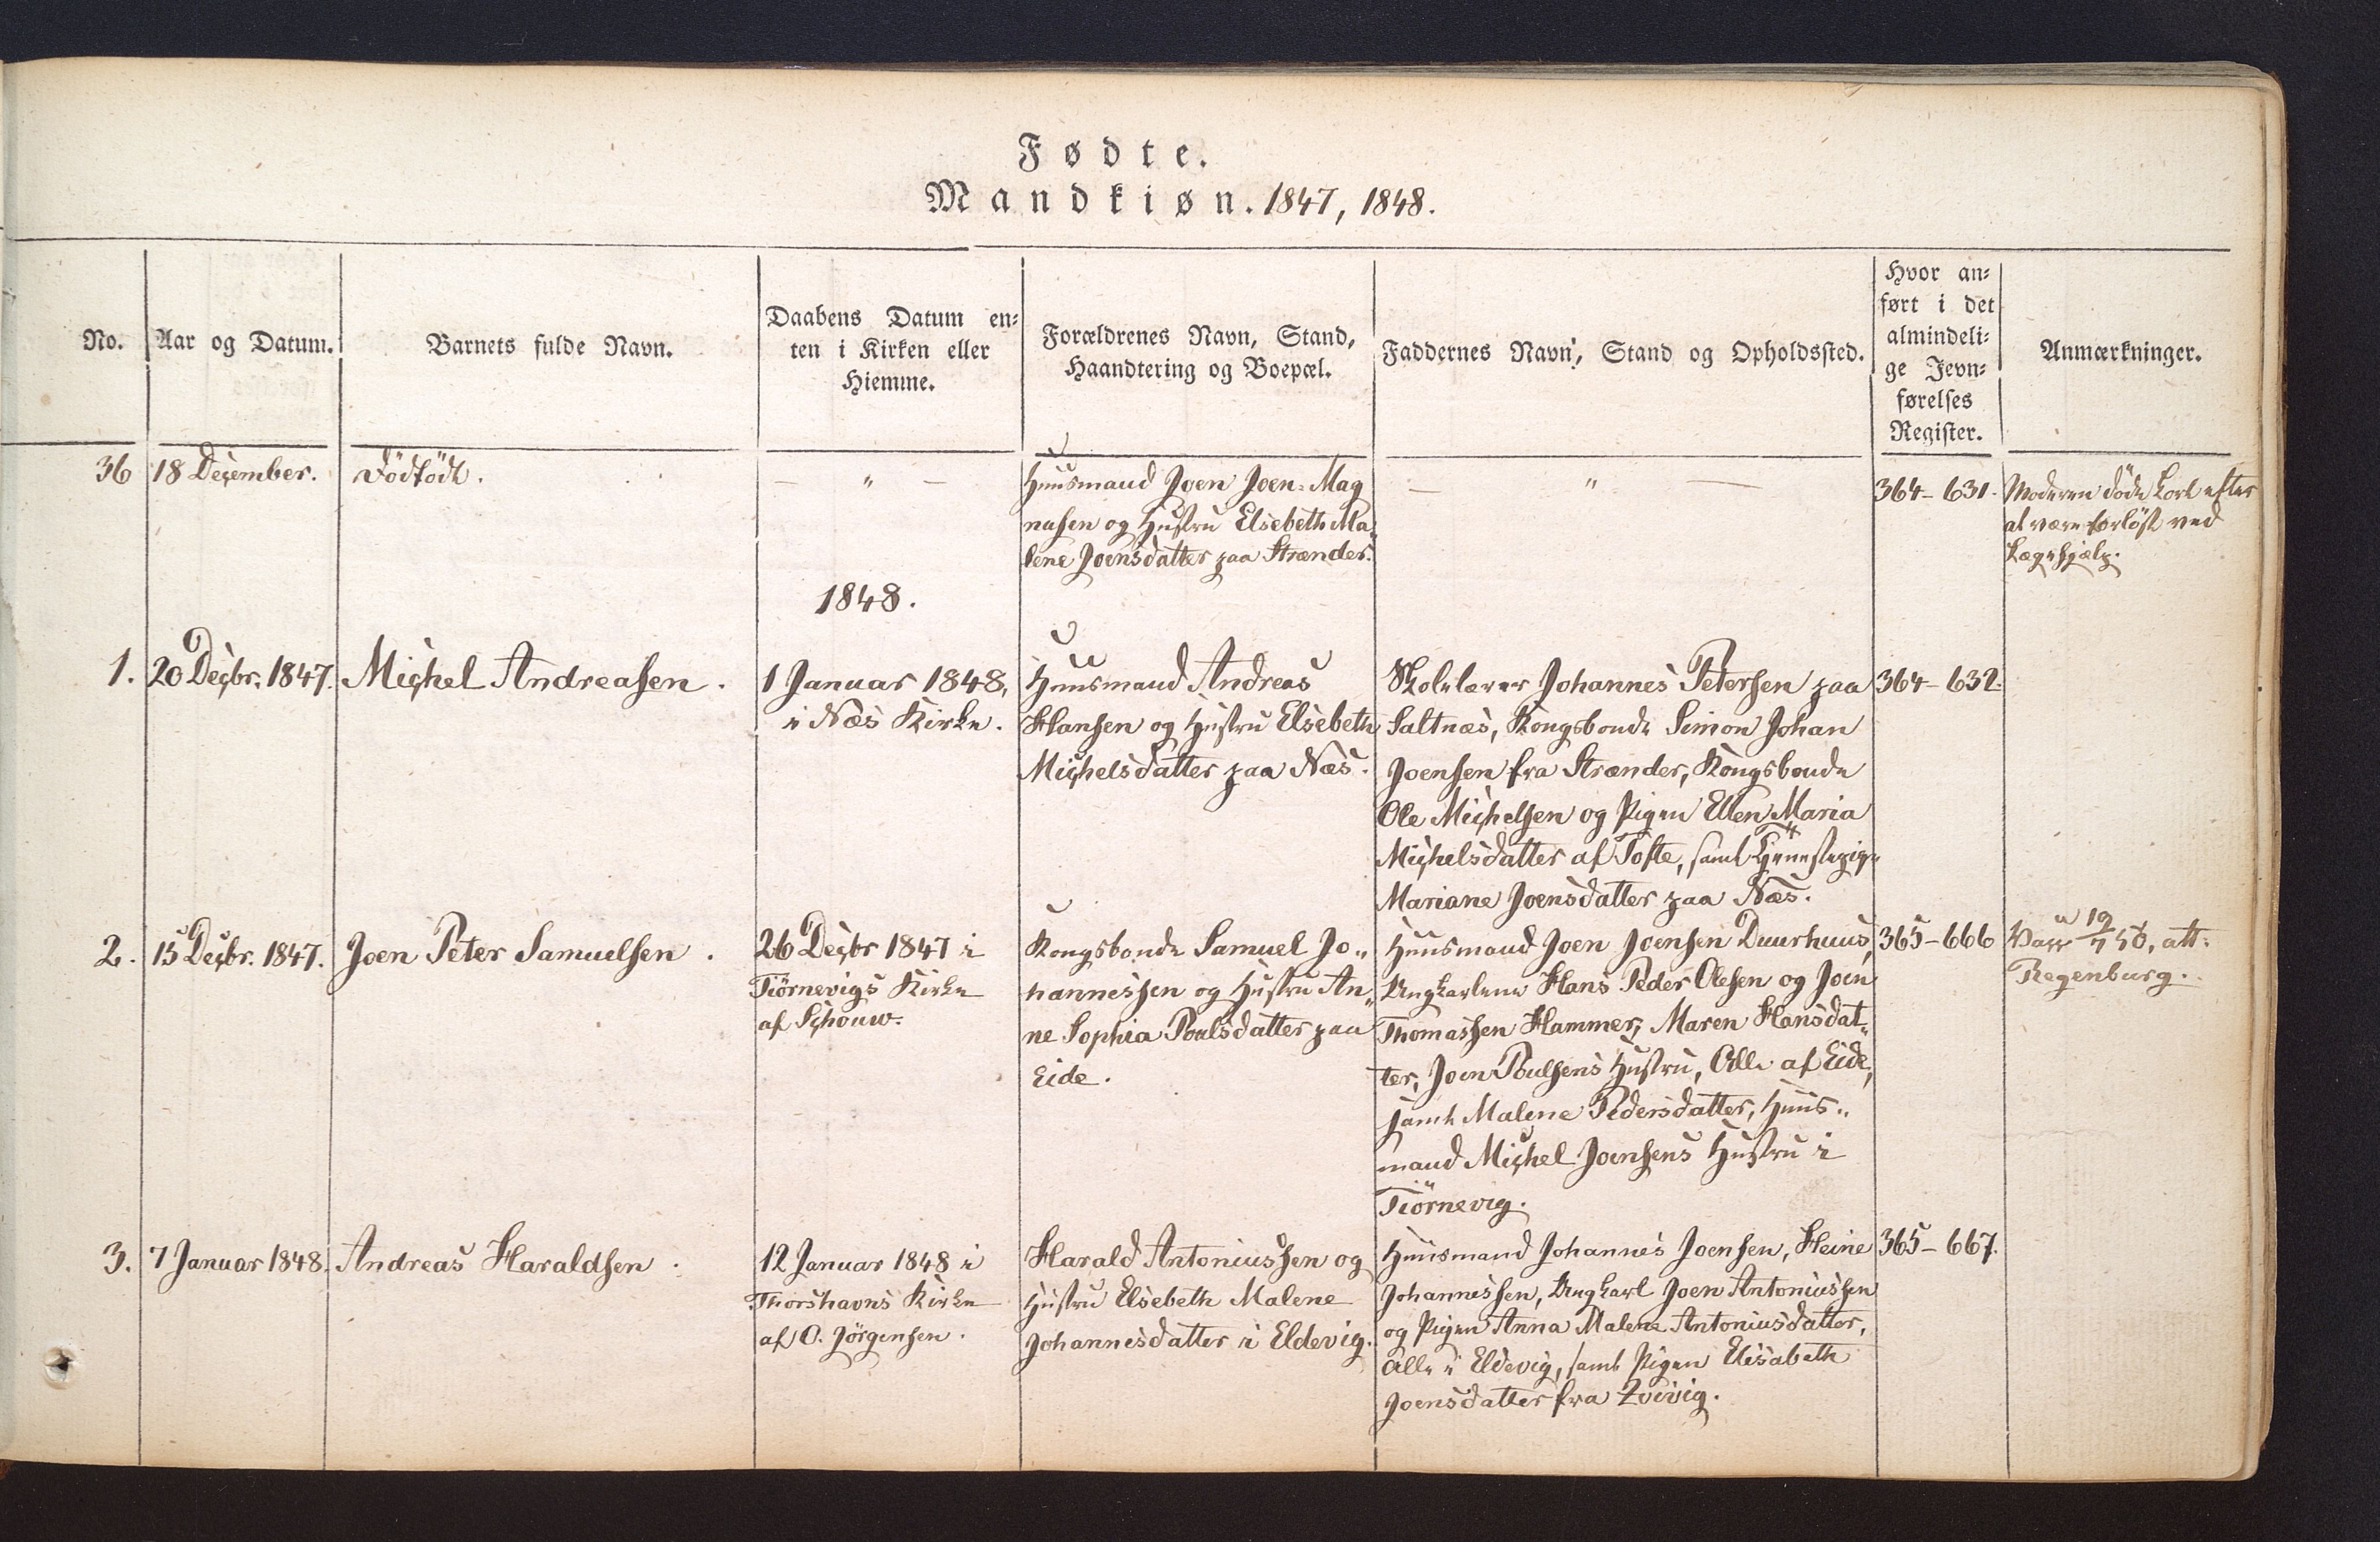 Fødte.
Mandkiøn. 1847, 1848.
No.
Aar og Datum.
Barnets fulde Navn.
Daabens Datum en-
ten i Kirken eller
Hiemme.
Forældrenes Navn, Stand,
Haandtering og Boepæl.
Faddernes Navn, Stand og Opholdssted.
Hvor an-
ført i det
almindeli-
ge Jevn-
førelses
Register.
Anmærkninger.
36
18 December.
Dödfödt.
— " —
Huusmand Joen Joen-Mag
nusen og Hustru Elsebeth Ma-
lene Joensdatter paa Strænder.
— " —
364-631.
Moderen döde kort efter
at være forlöst ved
Lægehjælp.
1848.
1.
20 Decbr. 1847.
Michel Andreasen.
1 Januar 1848,
i Næs Kirke.
Huusmand Andreas
Hansen og Hustru Elsebeth
Michelsdatter paa Næs.
Skolelærer Johannes Petersen paa
Saltnæs, Kongsbonde Simon Johan
Joensen fra Strænder, Kongsbonde
Ole Michelsen og Pigen Ellen Maria
Michelsdatter af Tofte, samt Tjenestepige
Mariane Joensdatter paa Næs.
364-632.
2.
15 Decbr. 1847.
Joen Peter Samuelsen.
26 Decbr 1847 i
Tiörnevigs Kirke
af Schouw.
Kongsbonde Samuel Jo-
hannessen og Hustru An-
ne Sophia Poulsdatter paa
Eide.
Huusmand Joen Joensen Duurhuus,
Ungkarlene Hans Peder Olesen og Joen
Thomassen Hammer, Maren Hansdat-
ter, Joen Poulsens Hustru, Alle af Eide,
samt Malene Pedersdatter, Huus-
mand Michel Joensens Hustru i
Tiörnevig.
365-666
Vacc 19/7 50, att.
Regenburg.
3.
7 Januar 1848.
Andreas Haraldsen.
12 Januar 1848 i
Thorshavns Kirke
af O. Jörgensen.
Harald Antoniussen og
Hustru Elsebeth Malene
Johannesdatter i Eldevig.
Huusmand Johannes Joensen, Heine
Johannessen, Ungkarl Joen Antoniussen
og Pigen Anna Malene Antoniusdatter,
alle i Eldevig, samt Pigen Elisabeth
Joensdatter fra Zvivig.
365-667.